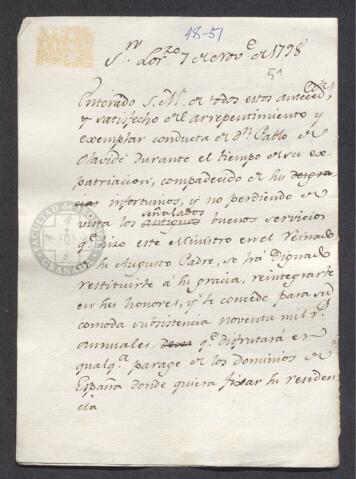 48-51
Sn Lorzo 7 de Nove de 1798
51
Enterado S. M. de todos estos antecedtes
y satisfecho del arrepentimiento y
exemplar conducta de Dn Pablo de
Olavide durante el tiempo de su ex
patriacion, compadecido de sus desgra
cias infortunios, y no perdiendo de
señalados
vista los antiguos buenos servicios
qe hizo este Ministro en el Reinado
de su Augusto Padre, se ha dignado
restituirle á su gracia, reintegrarle
en sus honores, y le concede para su
comoda subsistencia noventa mil rs
annuales, qe disfrutará en
qualqa parage de los dominios de
España donde quiera fixar su residen
cia
FACULTAD
GRANADA